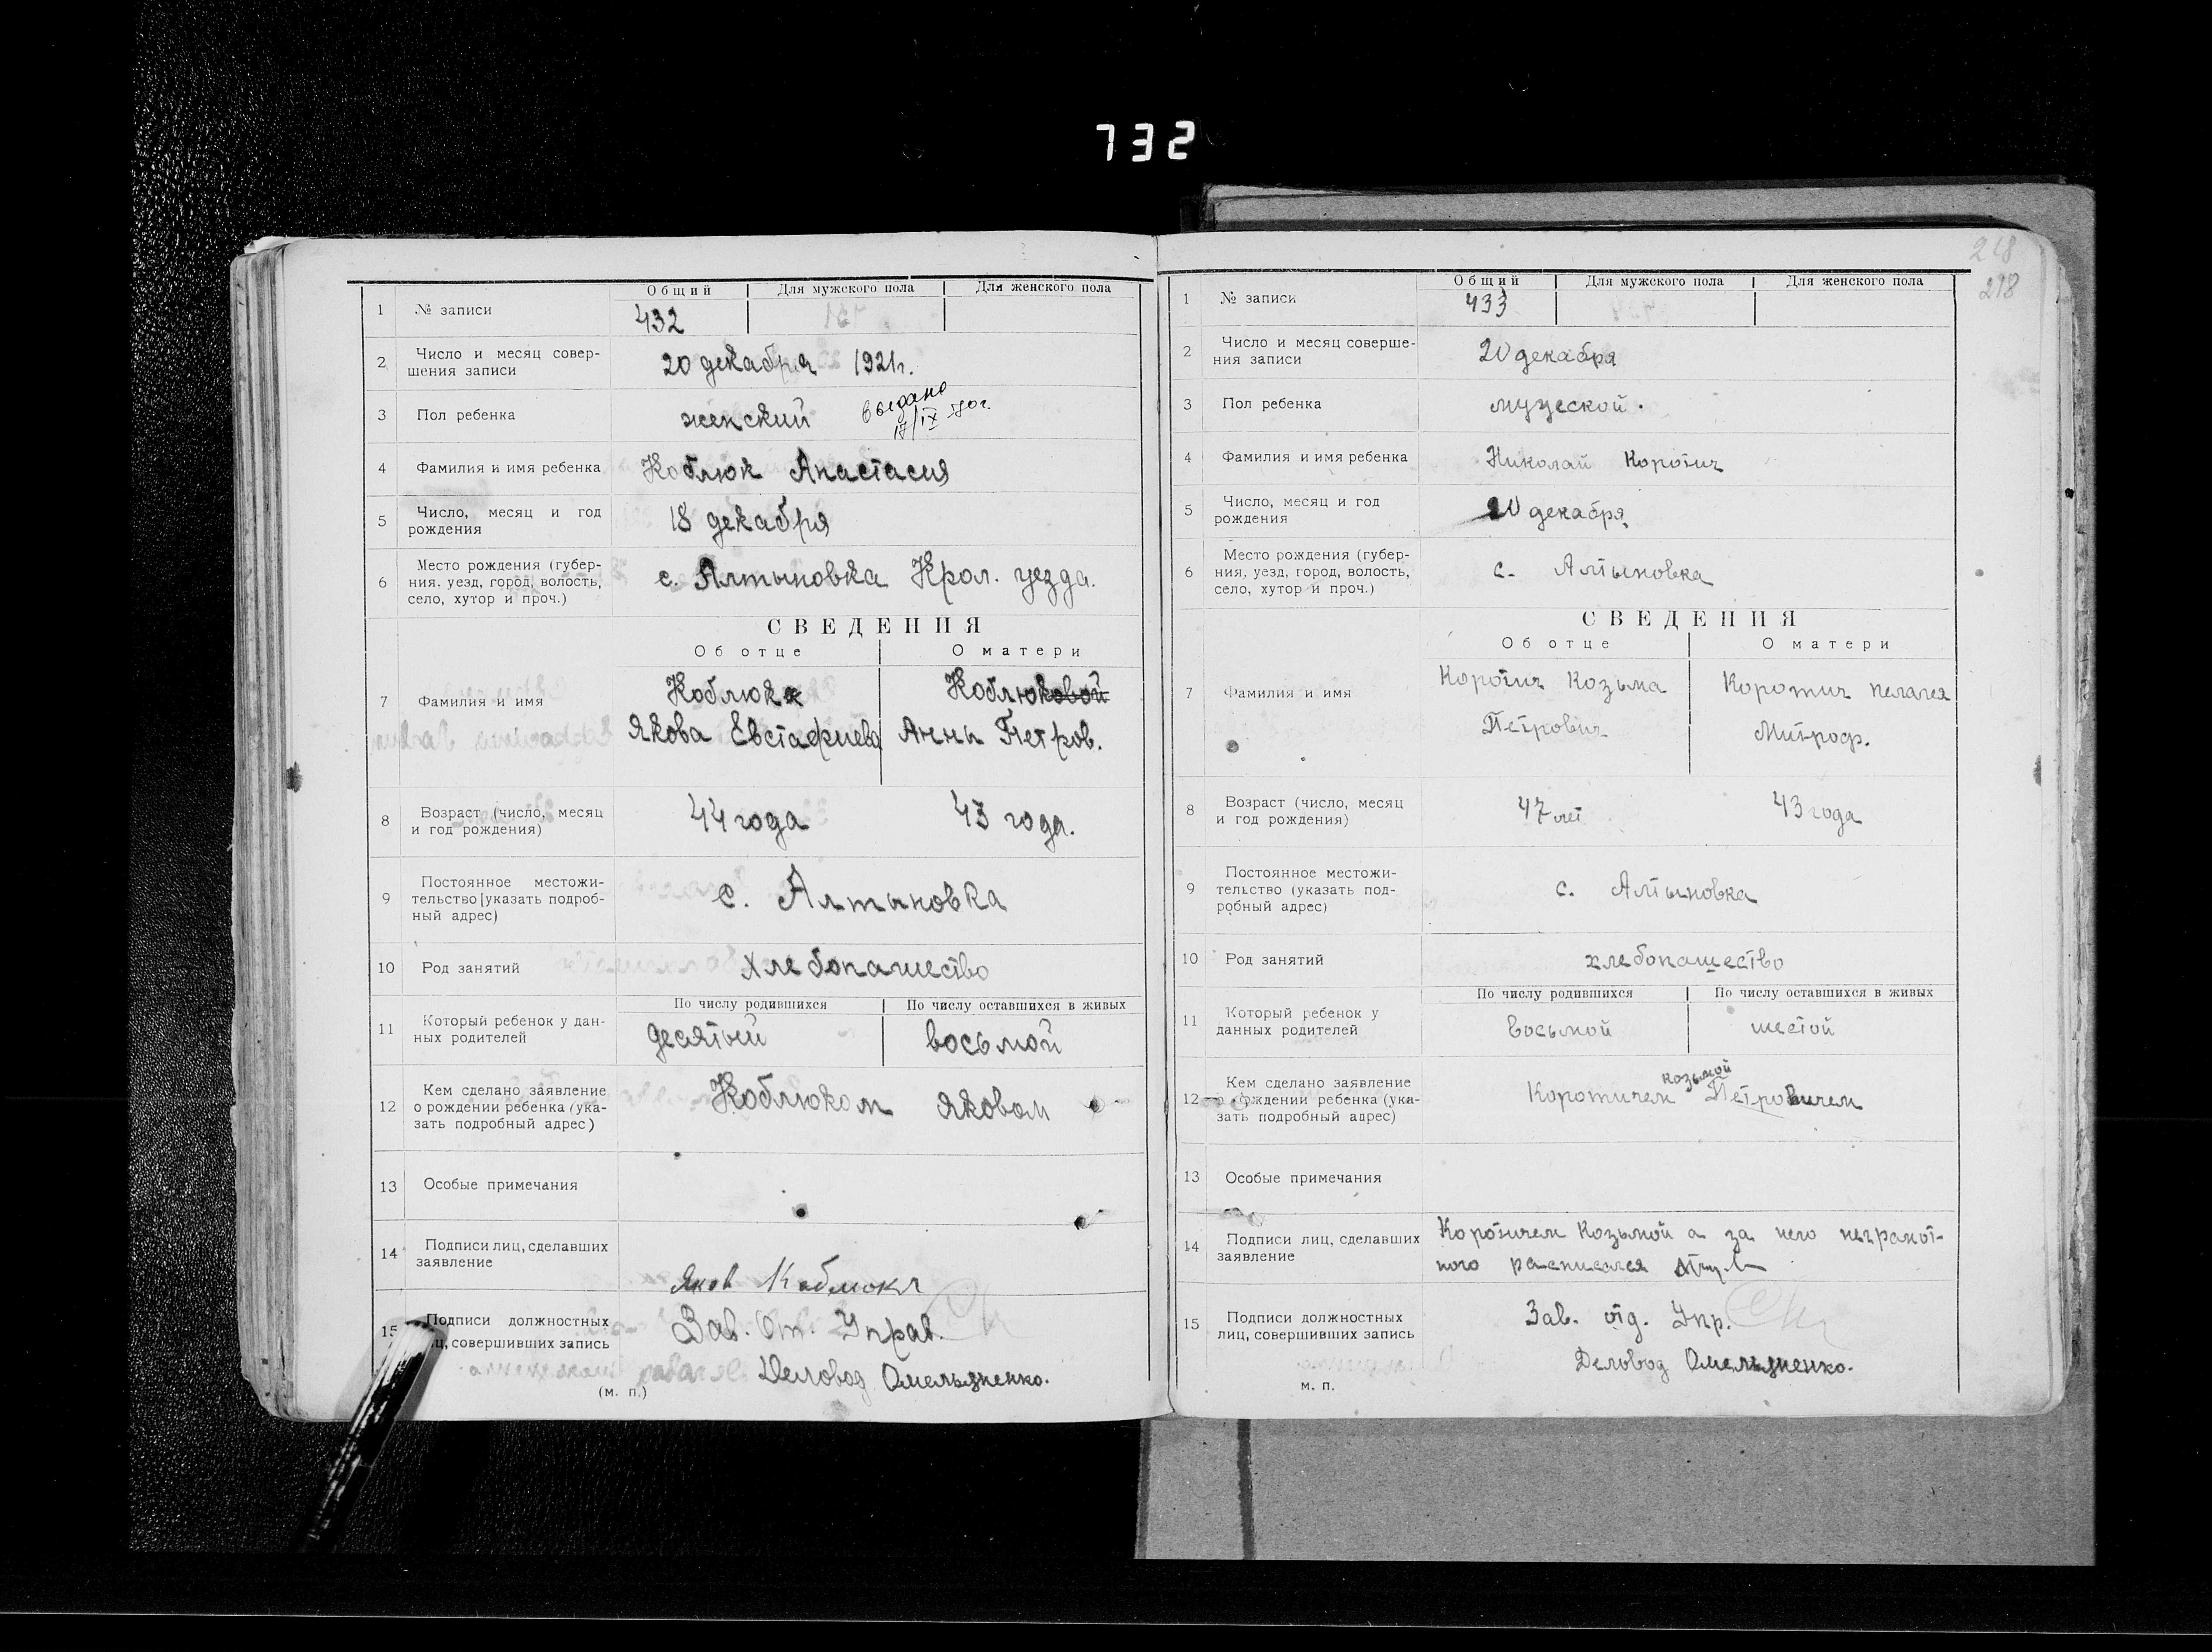 732
Общий Для мужского пола Для женского пола
1 № записи 432
2 Число и месяц совер-
шения записи 20 декабря 1921г.
3 Пол ребенка женский выдано
/IX
4 Фамилия и имя ребенка Коблюк Анастасия
5 Число, месяц и год
рождения 18 декабря
6 Место рождения (губер-
ния, уезд, город, волость,
село, хутор и проч.) с. Алтыновка Крол. уезда.
СВЕДЕНИЯ
Об отце О матери
7 Фамилия и имя Коблюк Коблюковой
Якова Евстафиева Анны Петров.
8 Возраст (число, месяц
и год рождения) 44 года 43 года.
9 Постоянное местожи-
тельство [указать подроб-
ный адрес) с. Алтыновка
10 Род занятий хлебопашество
По числу родившихся По числу оставшихся в живых
11 Который ребенок у дан-
ных родителей десятый восьмой
12 Кем сделано заявление
о рождении ребенка (ука-
зать подробный адрес) Коблюком Яковом
13 Особые примечания
14 Подписи лиц, сделавших
заявление Яков Коблюк
15 Подписи должностных
лиц, совершивших запись Зав. От. Управ.
Деловод Омельяненко.
(м. п.)
218
218
Общий Для мужского пола Для женского пола
1 № записи 433
2 Число и месяц соверше-
ния записи 20 декабря
3 Пол ребенка мужеской.
4 Фамилия и имя ребенка Николай Коротич
5 Число, месяц и год
рождения 20 декабря
6 Место рождения (губер-
ния, уезд, город, волость,
село, хутор и проч.) с. Алтыновка
СВЕДЕНИЯ
Об отце О матери
7 Фамилия и имя Коротич Козьма Коротич Пелагея
Петрович Митроф.
8 Возраст (число, месяц
и год рождения) 47 лет 43 года
9 Постоянное местожи-
тельство (указать под-
робный адрес) с. Алтыновка
10 Род занятий хлебопашество
По числу родившихся По числу оставшихся в живых
11 Который ребенок у
данных родителей восьмой шестой
12 Кем сделано заявление
о рождении ребенка (ука-
зать подробный адрес) Коротичем козьмой Петровичем
13 Особые примечания
14 Подписи лиц, сделавших
заявление Коротичем Козьмой а за него неграмот-
ного расписался
15 Подписи должностных
лиц, совершивших запись Зав. отд. Упр.
Деловод Омельяненко.
м. п.